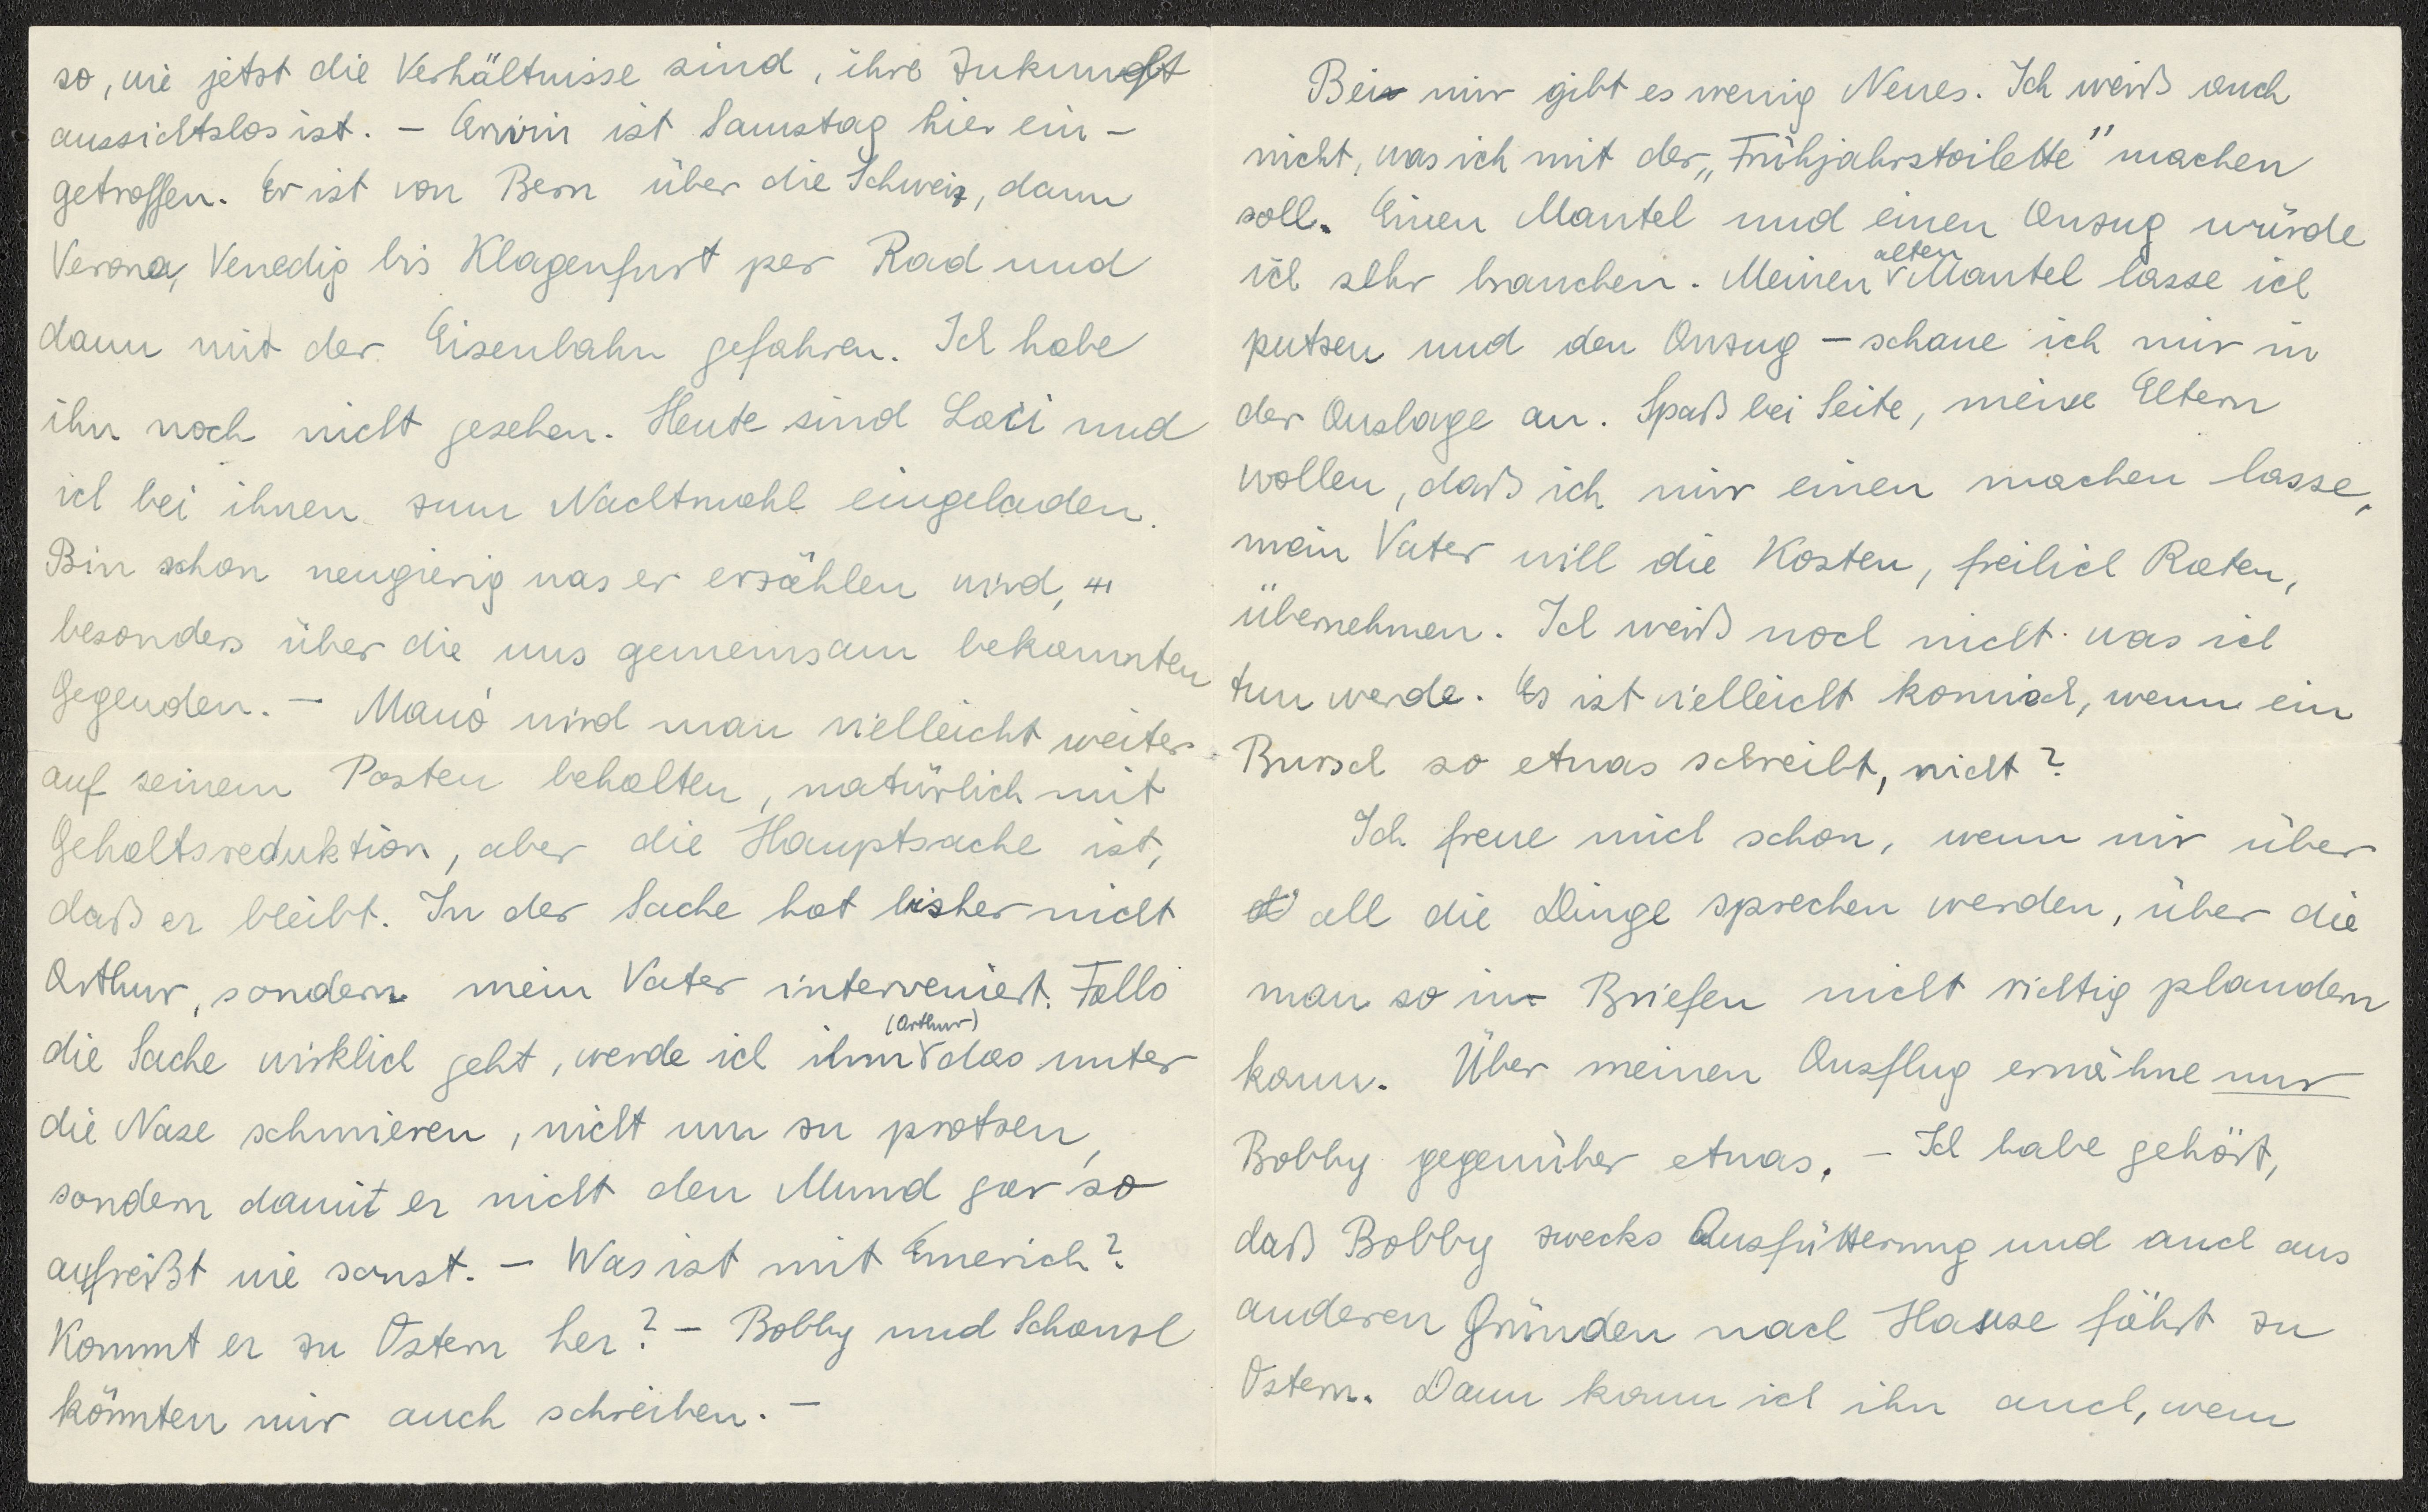 so, wie jetzt die Verhältnisse sind, ihre Zukunft
aussichtslos ist. – Erwin ist Samstag hier ein-
getroffen. Er ist von Bern über die Schweiz, dann
Verona, Venedig bis Klagenfurt per Rad und
dann mit der Eisenbahn gefahren. Ich habe
ihn noch nicht gesehen. Heute sind Laci und
ich bei ihnen zum Nachtmahl eingeladen.
Bin schon neugierig was er erzählen wird,
besonders über die uns gemeinsam bekannten
Gegenden. – Manó wird man vielleicht weiter
auf seinem Posten behalten, natürlich mit
Gehaltsreduktion, aber die Hauptsache ist,
daß er bleibt. In der Sache hat bisher nicht
Arthur, sondern mein Vater interveniert. Falls
die Sache wirklich geht, werde ich ihm (Arthur) das unter
die Nase schmieren, nicht um zu protzen,
sondern damit er nicht den Mund gar so
aufreißt wie sonst. – Was ist mit Emerich?
Kommt er zu Ostern her? – Bobby und Schansl
könnten mir auch schreiben. –
Bei mir gibt es wenig Neues. Ich weiß auch
nicht, was ich mit der „Frühjahrstoilette" machen
soll. Einen Mantel und einen Anzug würde
ich sehr brauchen. Meinen alten Mantel lasse ich
putzen und den Anzug – schaue ich mir in
der Auslage an. Spaß bei Seite, meine Eltern
wollen, daß ich mir einen machen lasse,
mein Vater will die Kosten, freilich Raten,
übernehmen. Ich weiß noch nicht was ich
tun werde. Es ist vielleicht komisch, wenn ein
Bursch so etwas schreibt, nicht?
Ich freue mich schon, wenn wir über
all die Dinge sprechen werden, über die
man so in Briefen nicht richtig plaudern
kann. Über meinen Ausflug erwähne nur
Bobby gegenüber etwas. – Ich habe gehört,
daß Bobby zwecks Ausfütterung und auch aus
anderen Gründen nach Hause fährt zu
Ostern. Dann kann ich ihn auch, wenn